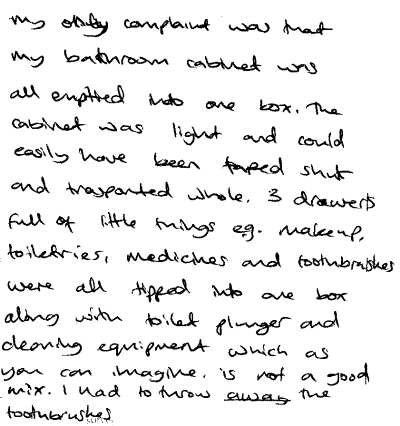 my only complaint was that
my bathroom cabinet was
all emptied into one box. The
cabinet was light and could
easily have been taped shut
and trasported whole. 3 drawers
full of little things eg. makeup,
toiletries, medicines and toothbrushes
were all tipped into one box
along with toilet plunger and
cleaning equipment which as
you can imagine. is not a good
mix. I had to throw away the
toothbrushes